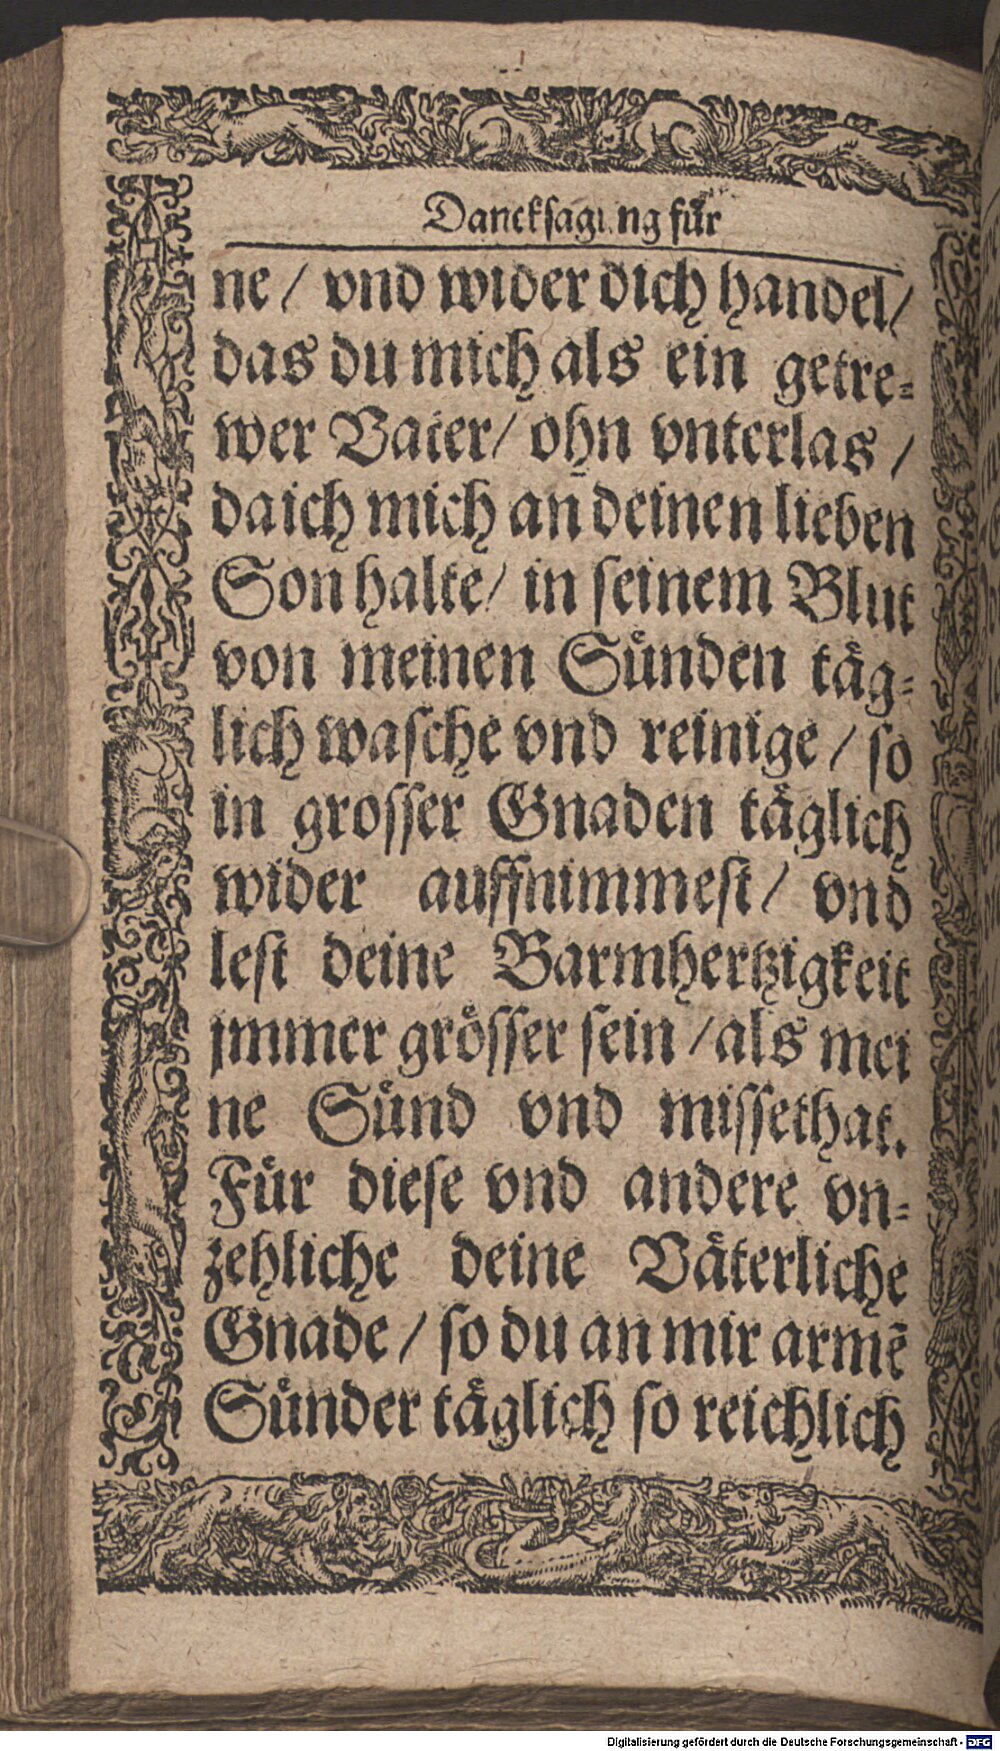 Dancksagung für
ne / vnd wider dich handel /
das du mich als ein getre⸗
wer Vater / ohn vnterlas /
da ich mich an deinen lieben
Son halte / in seinem Blut
von meinen Sünden täg⸗
lich wasche vnd reinige / so
in grosser Gnaden täglich
wider auffnimmest / vnd
lest deine Barmhertzigkeit
jmmer grösser sein / als mei
ne Sünd vnd missethat.
Für diese vnd andere vn⸗
zehliche deine Väterliche
Gnade / so du an mir armẽ
Sünder täglich so reichlich
Digitalisierung gefördert durch die Deutsche Forschungsgemeinschaft - DFG